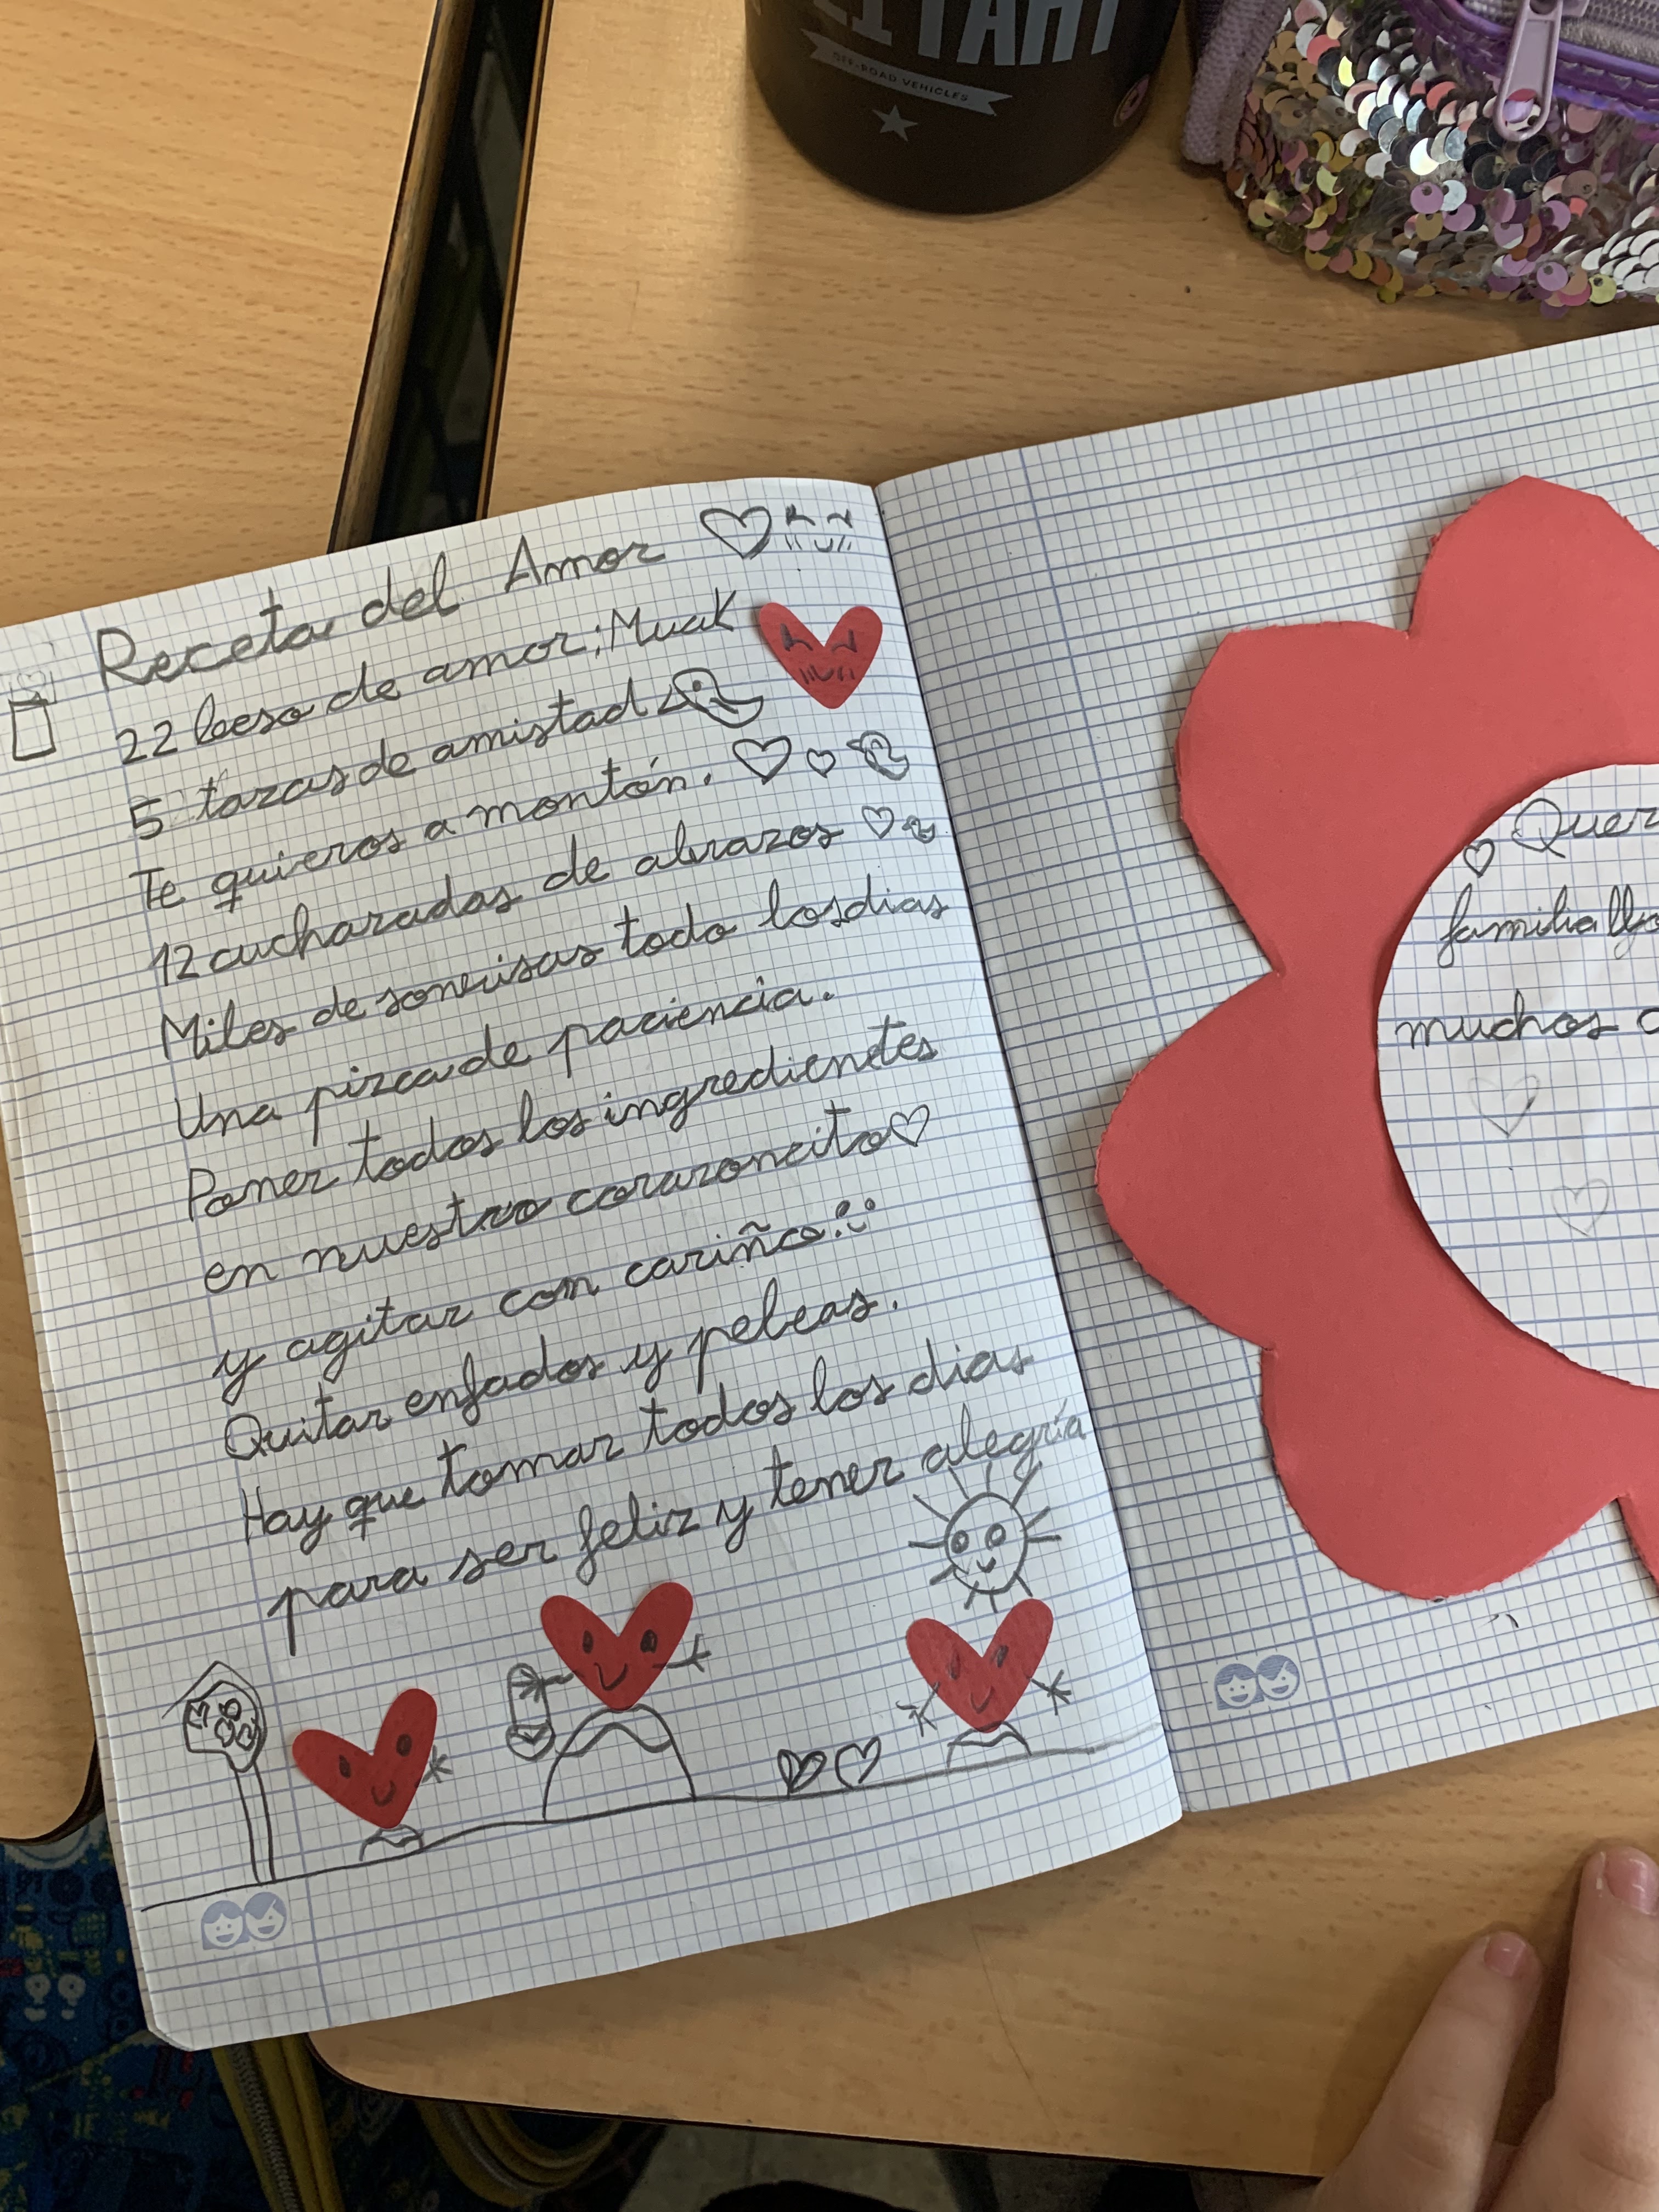 OFF-ROAD VEHICLES
Receta del Amor
22 beso de amor; Muak
5 tazas de amistad
Te quieros a montón.
12 cucharadas de abrazos
Miles de sonrisas todo los dias
Una pizca de paciencia.
Poner todos los ingredienetes
en nuestro corazoncito
y agitar con cariño.
Quitar enfados y peleas.
Hay que tomar todos los dias
para ser feliz y tener alegría
Quer
familia
muchos